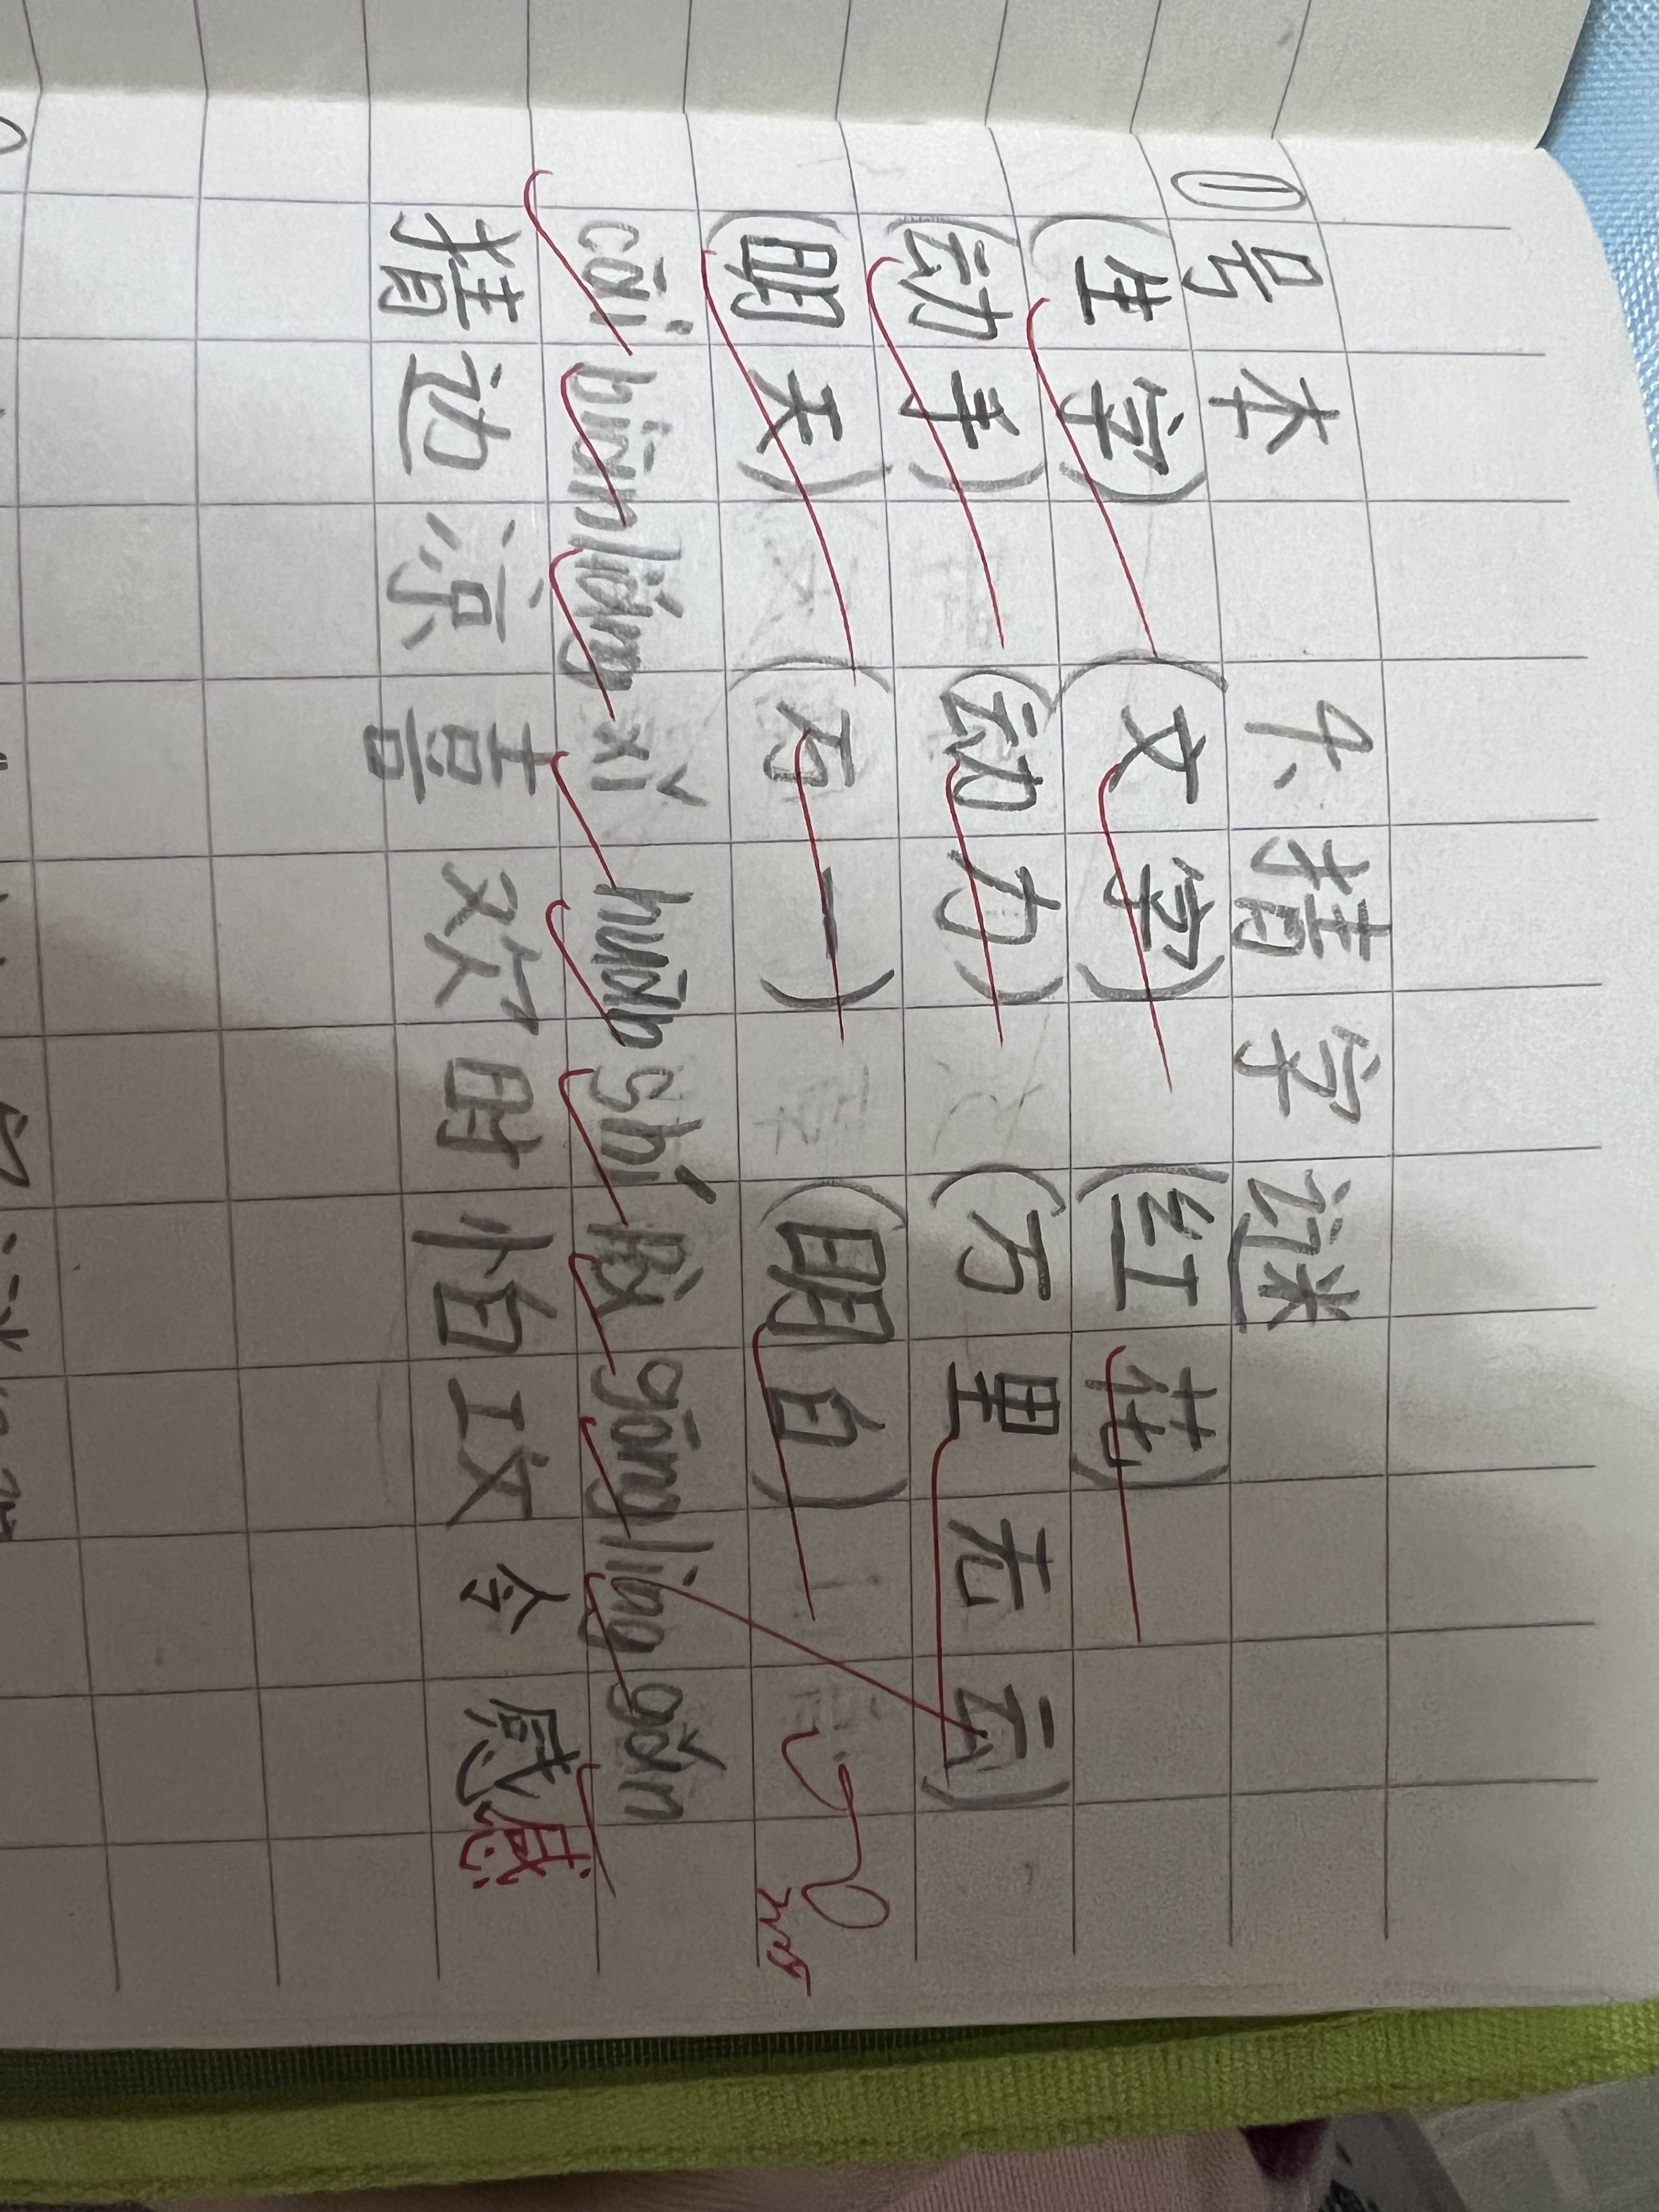 0号本 猜字谜
(生字) (文字) (红花)
(动手) (动力) (万里无云)
(明天) (万一) (明白)
cāi biān liáng xǐ huān shí pà gōng lìng gǎn
猜 边 凉 喜 欢 时 怕 攻 令 感 感